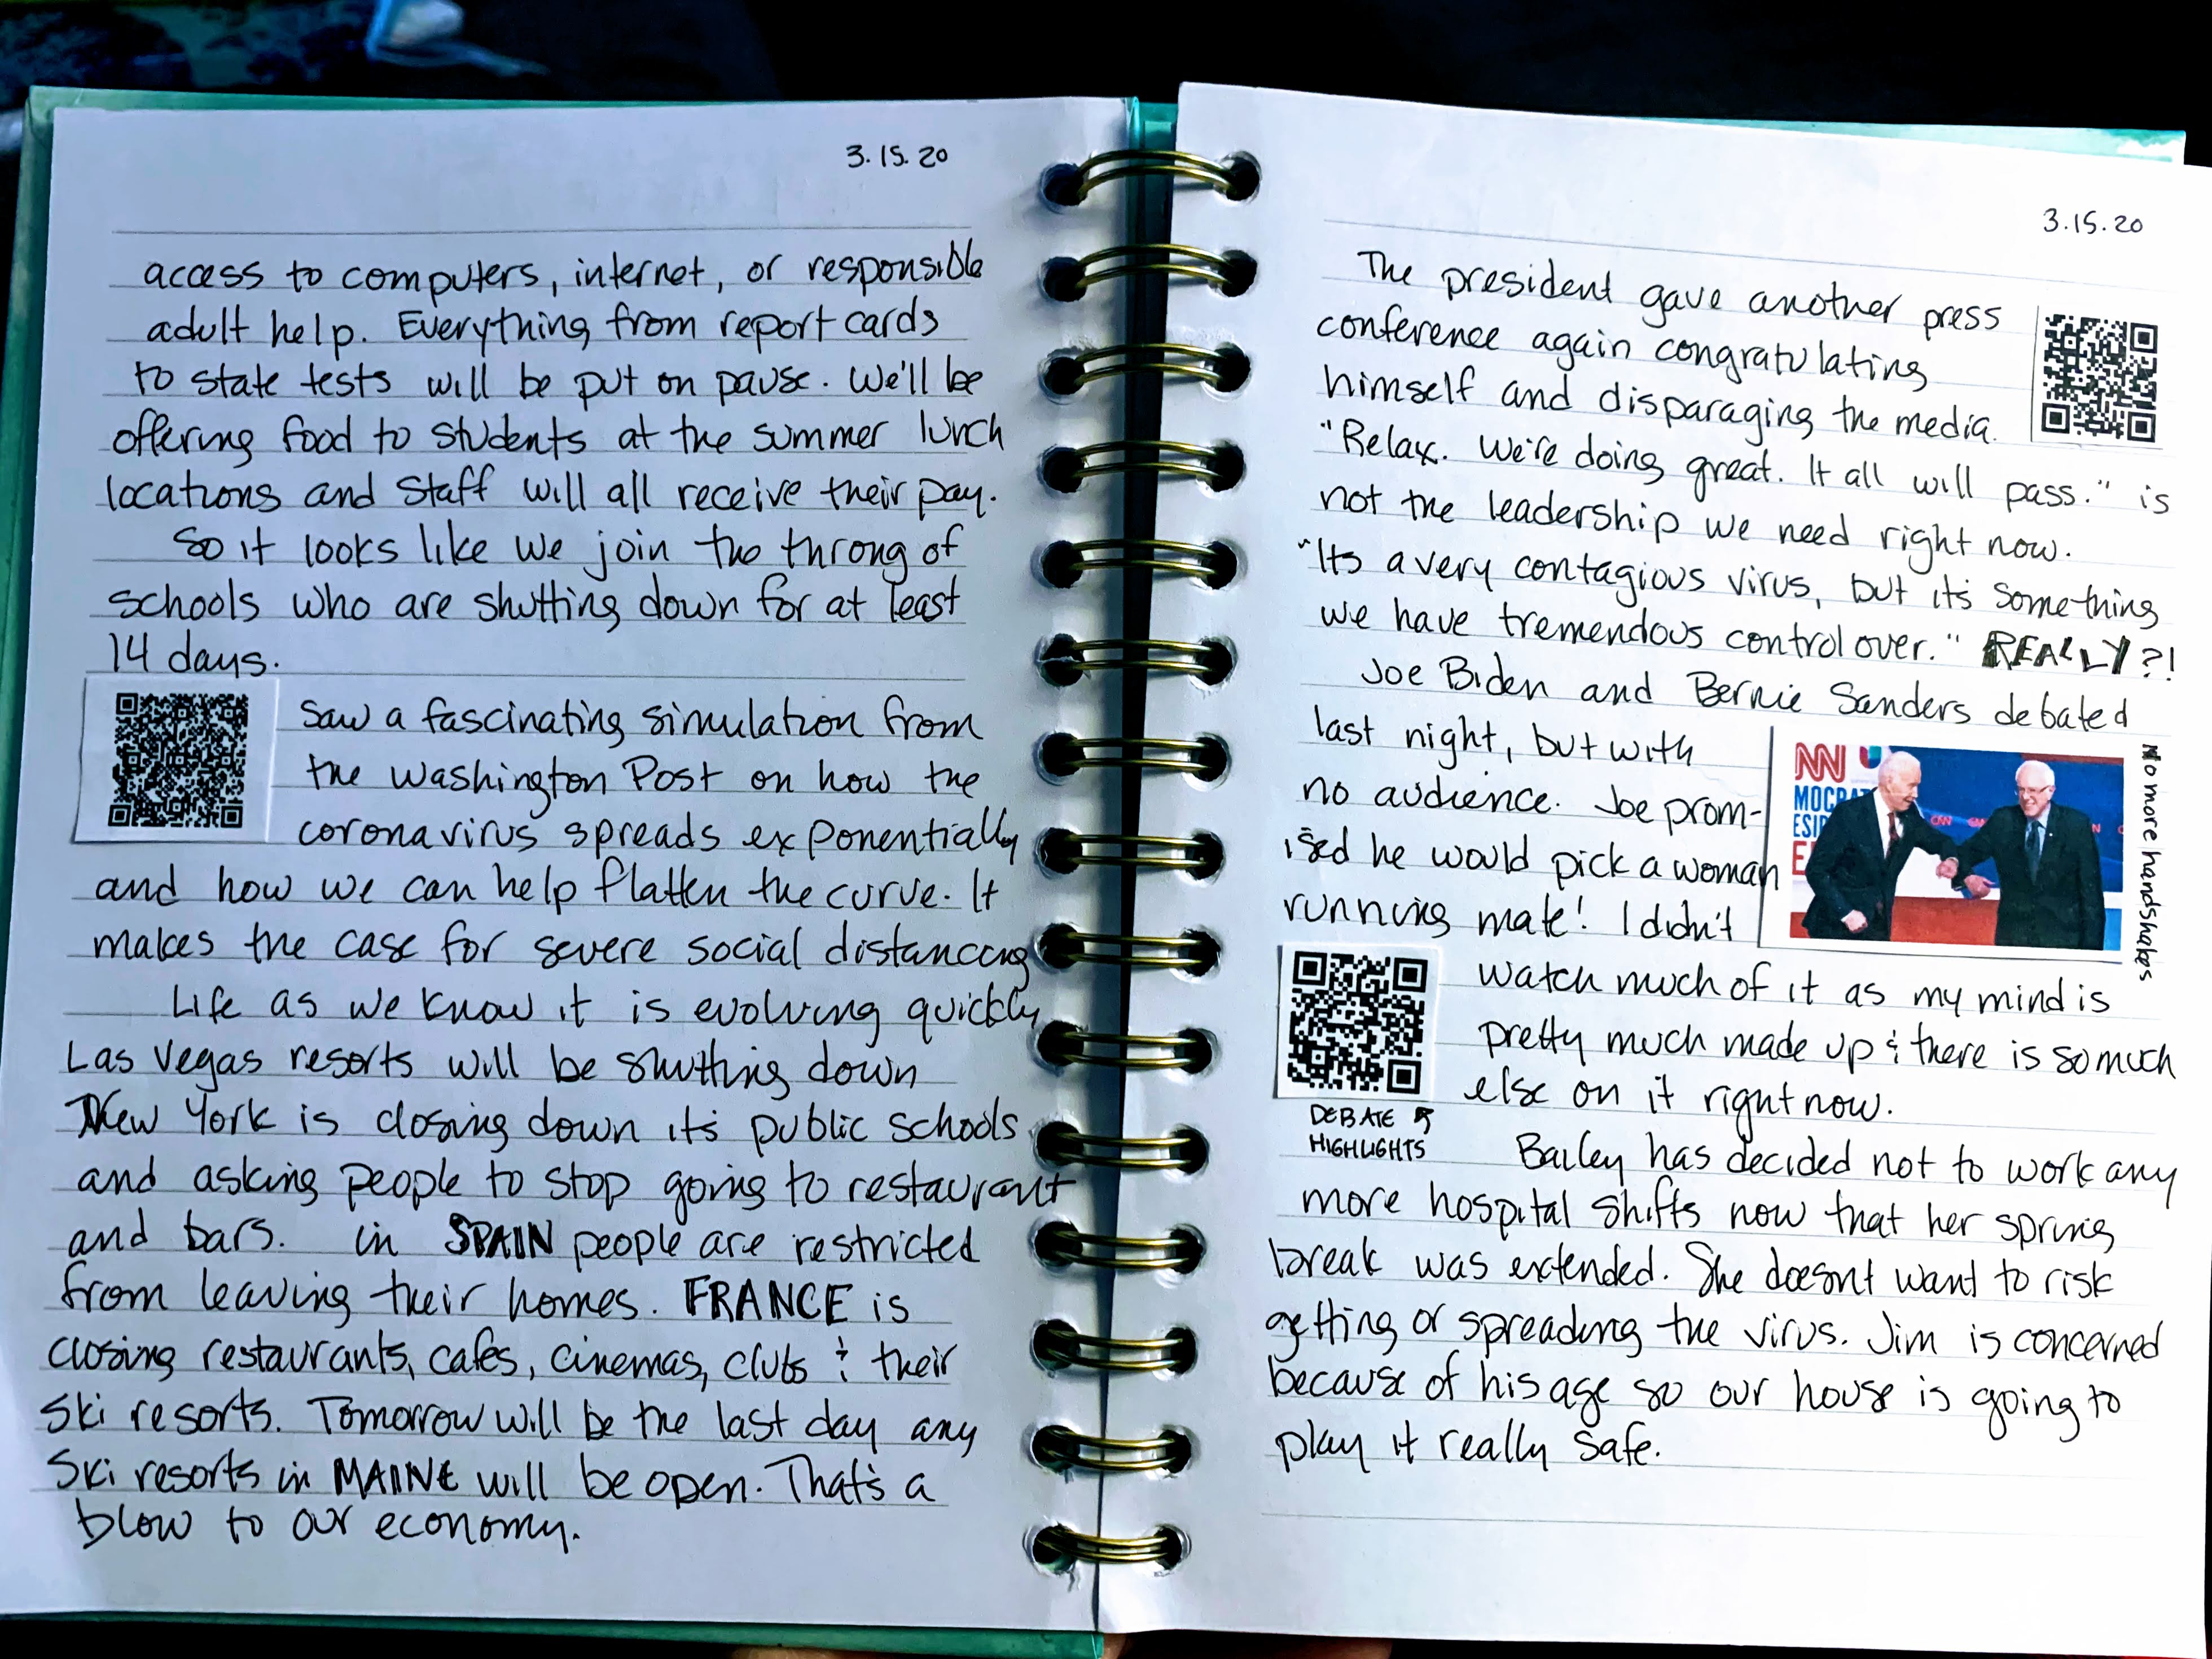 3.15.20
access to computers, internet, or responsible
adult help. Everything from report cards
to state tests will be put on pause. We'll be
offering food to students at the summer lunch
locations and staff will all receive their pay.
So it looks like we join the throng of
schools who are shutting down for at least
14 days.
Saw a fascinating simulation from
the Washington Post on how the
coronavirus spreads exponentially
and how we can help flatten the curve. It
makes the case for severe social distancing
Life as we know it is evolving quickly
Las Vegas resorts will be shutting down
New York is closing down it's public schools
and asking people to stop going to restaurant
and bars. in SPAIN people are restricted
from leaving their homes. FRANCE is
closing restaurants, cafes, cinemas, clubs & their
ski resorts. Tomorrow will be the last day any
ski resorts in MAINE will be open. That's a
blow to our economy.
3.15.20
The president gave another press
conference again congratulating
himself and disparaging the media.
"Relax. We're doing great. It all will pass." is
not the leadership we need right now.
"Its a very contagious virus, but it's something
we have tremendous control over." REALLY?!
Joe Biden and Bernie Sanders debated
last night, but with
no audience. Joe prom-
ised he would pick a woman
running mate! I didn't
NN
MOCRAT
ESID
E
CNN
No more handshakes
watch much of it as my mind is
pretty much made up & there is so much
else on it right now.
DEBATE
HIGHLIGHTS
Bailey has decided not to work any
more hospital shifts now that her spring
break was extended. She doesnt want to risk
getting or spreading the virus. Jim is concerned
because of his age so our house is going to
play it really safe.